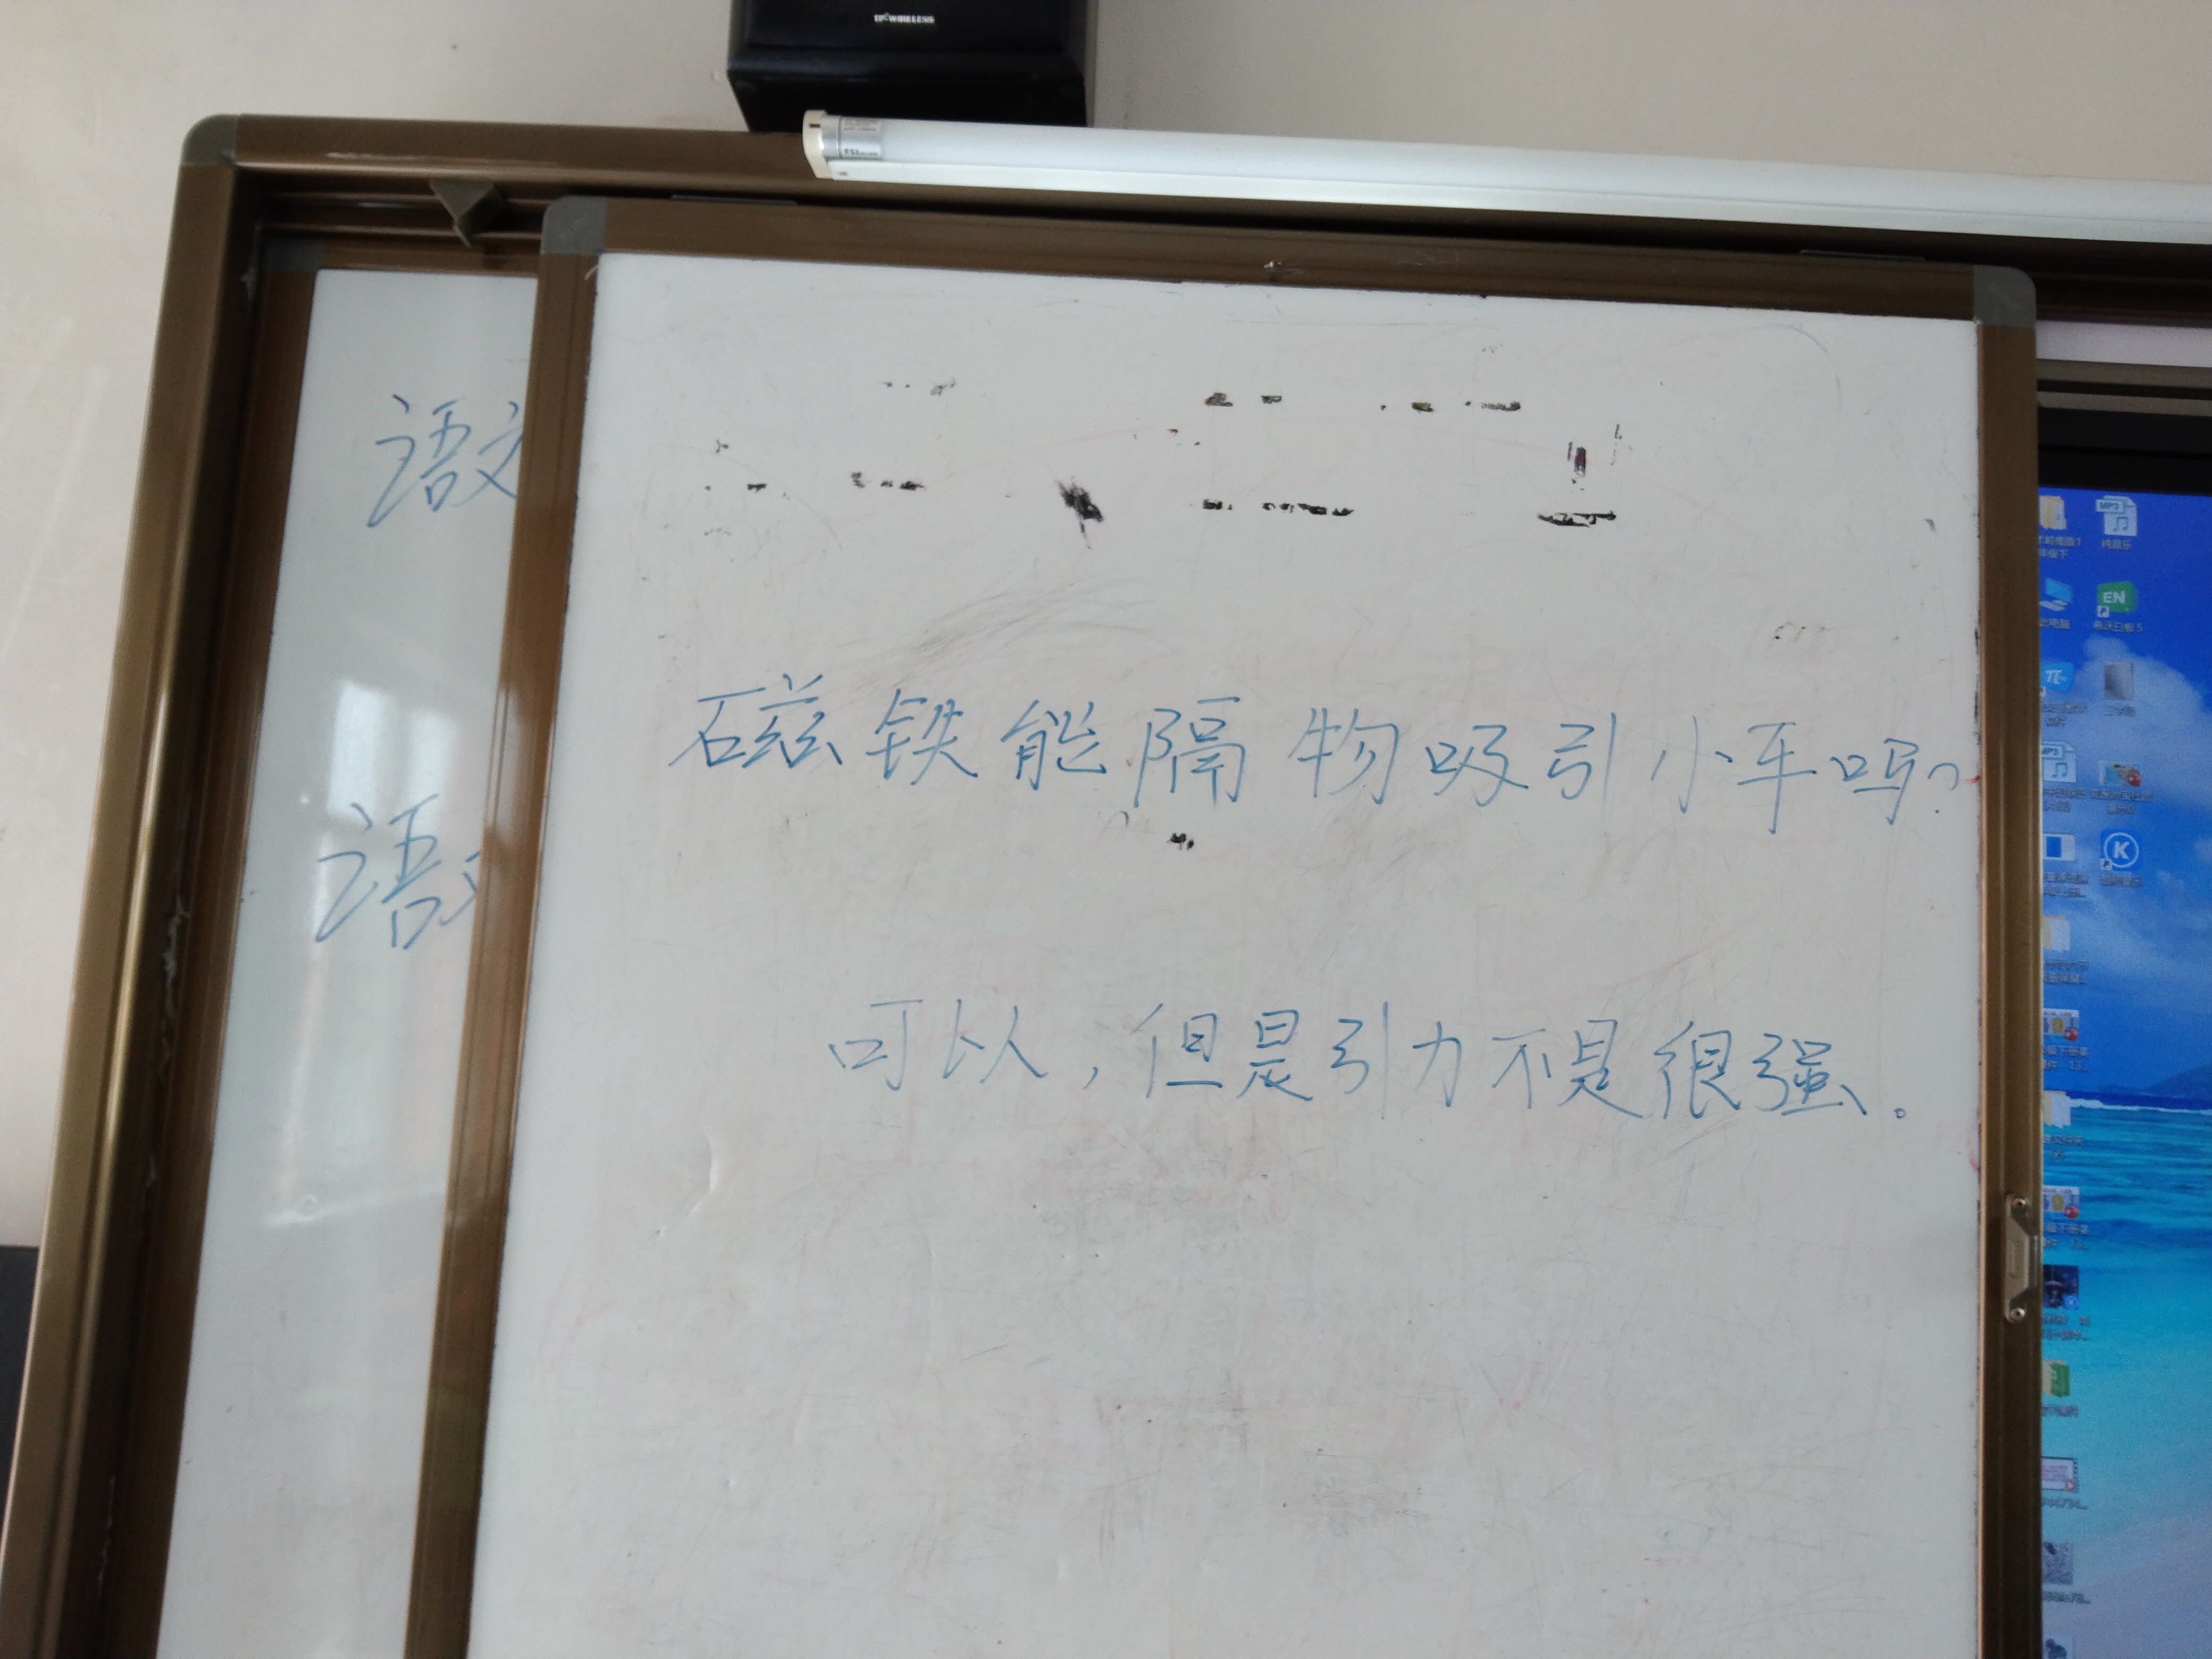 语文
语
磁铁能隔物吸引小车吗?
可以,但是引力不是很强。
EN
K